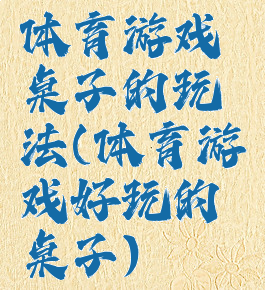 体育游戏
桌子的玩
法(体育游
戏好玩的
桌子)